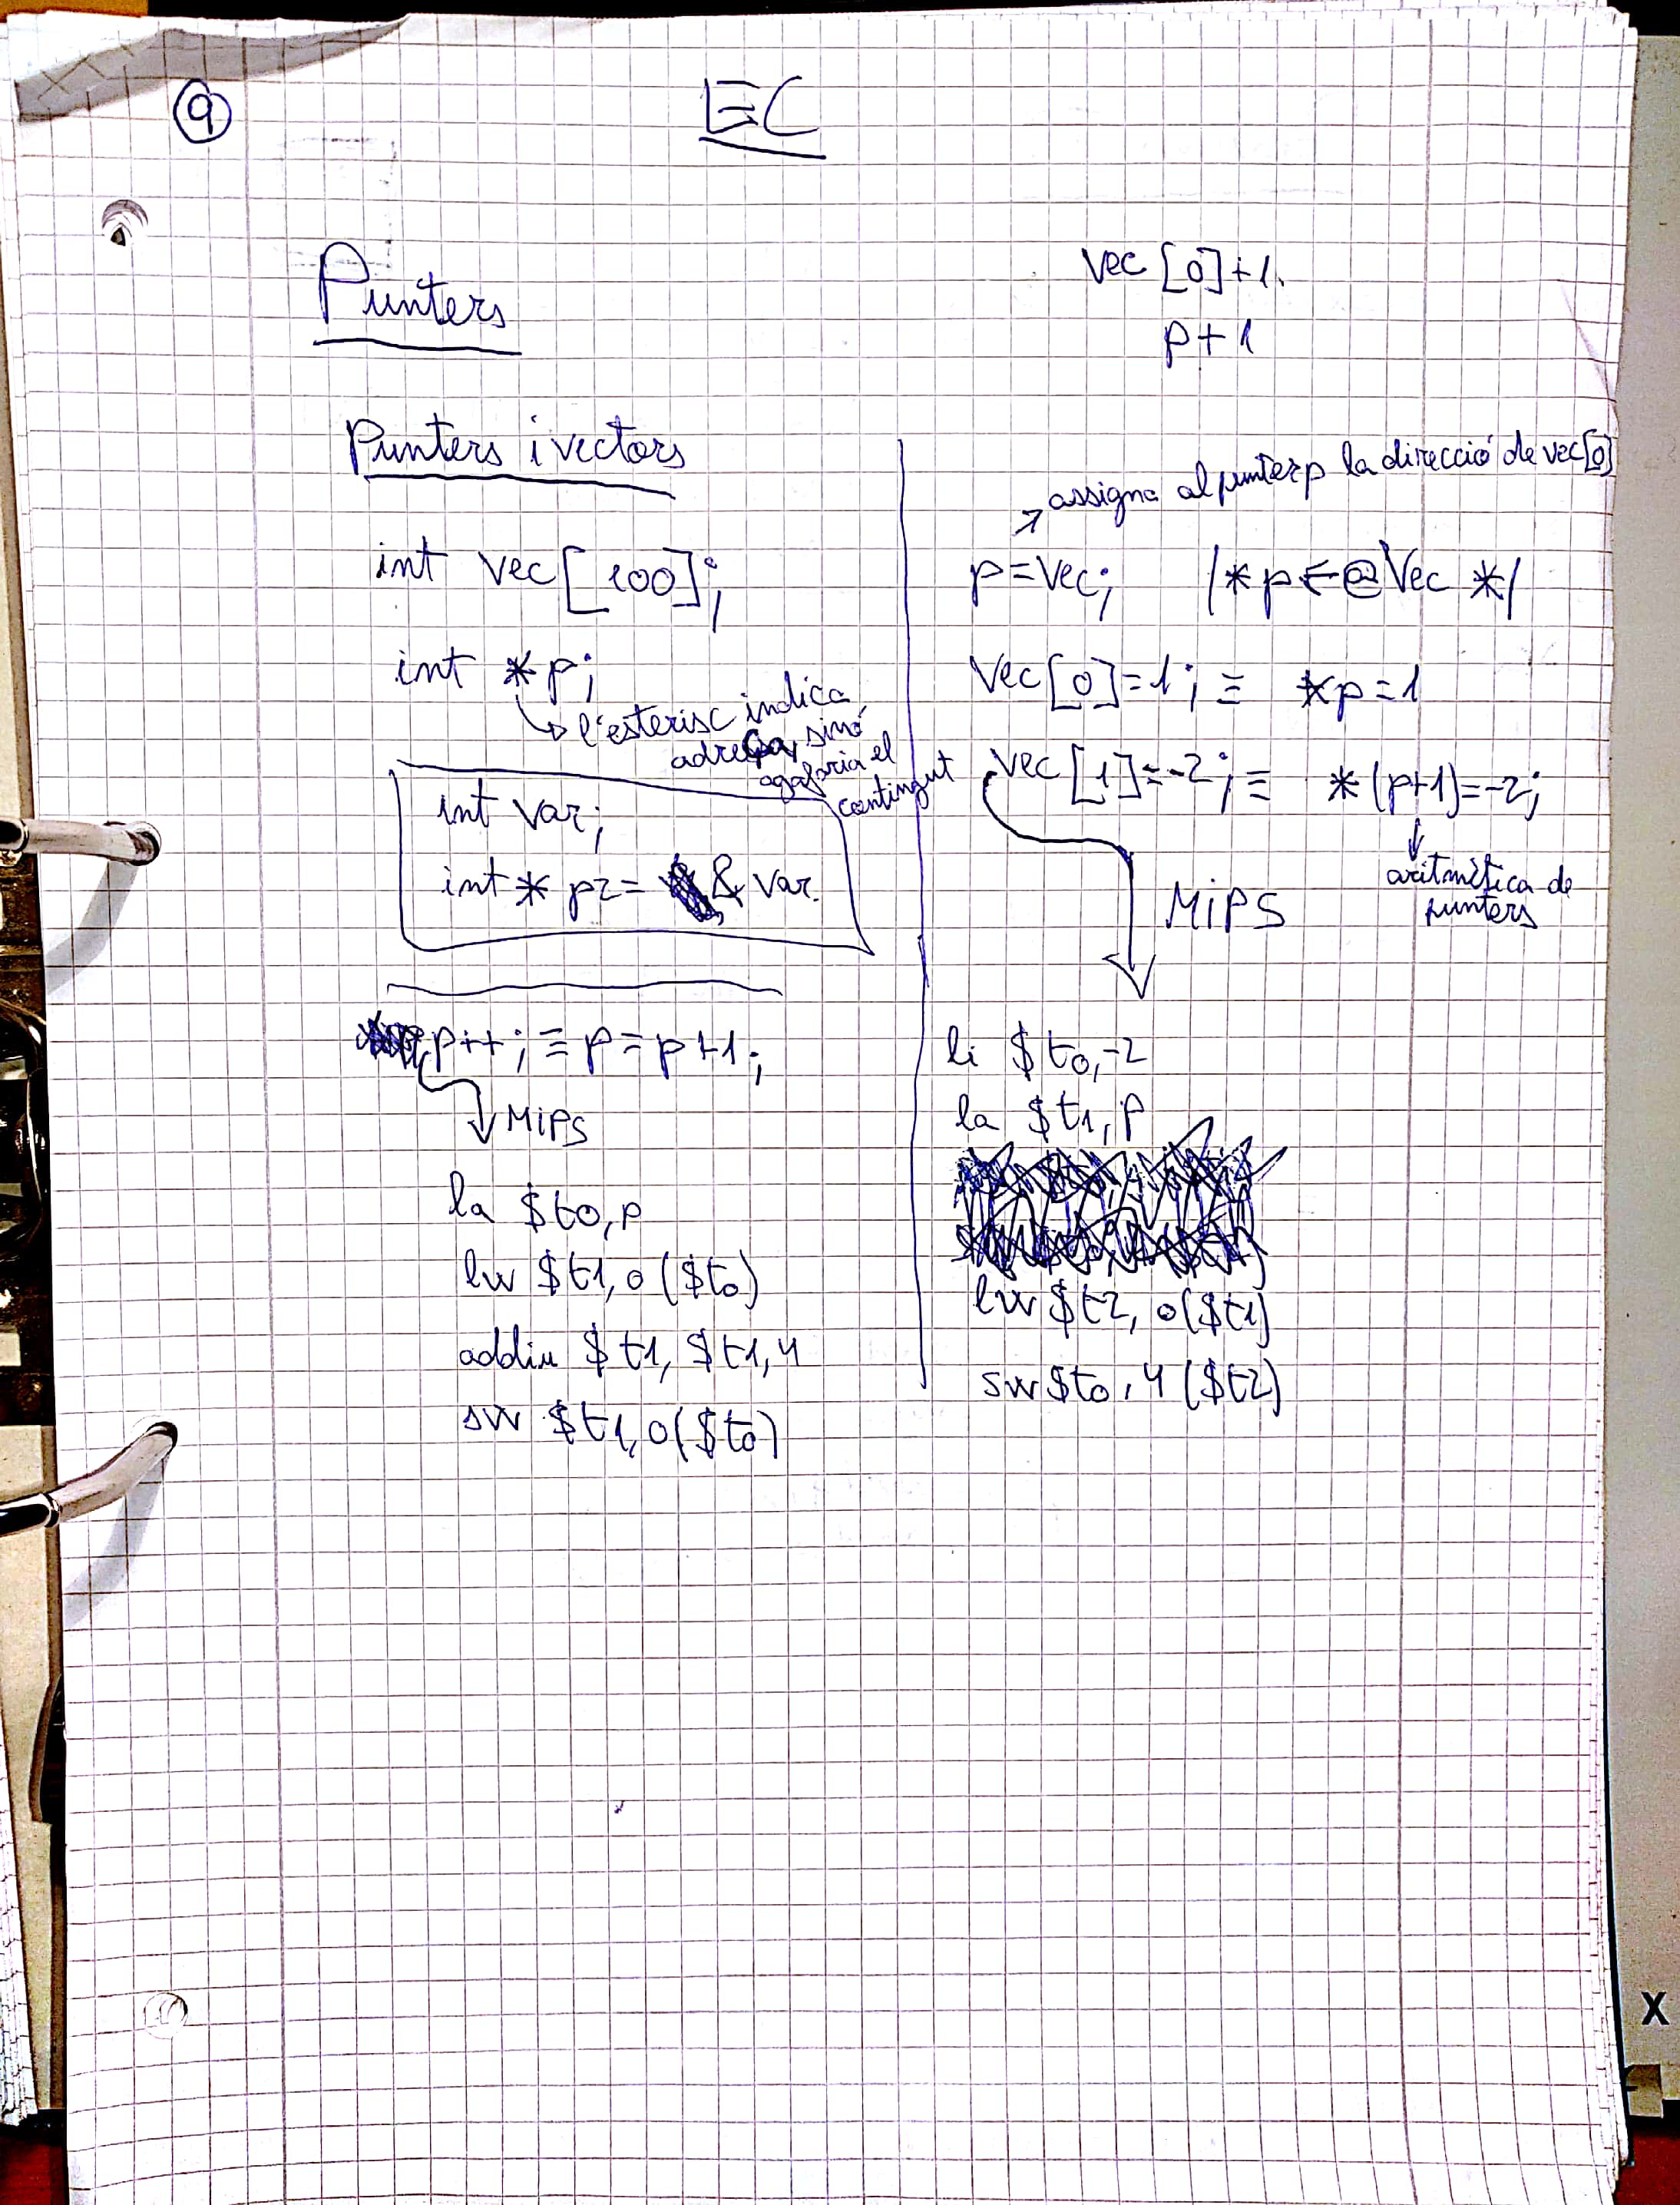 9
EC
Punters
vec[0]+1.
p+1
Punters i vectors
int vec[100];
int *p;
l'esterisc indica
adreça, sinó
agafaria el
contingut
int var;
int * p2 = & var.
p++; ≡ p = p+1;
MIPS
la $t0, p
lw $t1, 0($t0)
addiu $t1, $t1, 4
sw $t1, 0($t0)
assigna al punter p la direcció de vec[0]
p=vec; /*p ← @Vec */
Vec[0]=1; ≡ *p=1
vec[1]=-2; ≡ *(p+1)=-2;
aritmètica de
punters
MIPS
li $t0,-2
la $t1, P
lw $t2, 0($t1)
sw $t0, 4($t2)
X